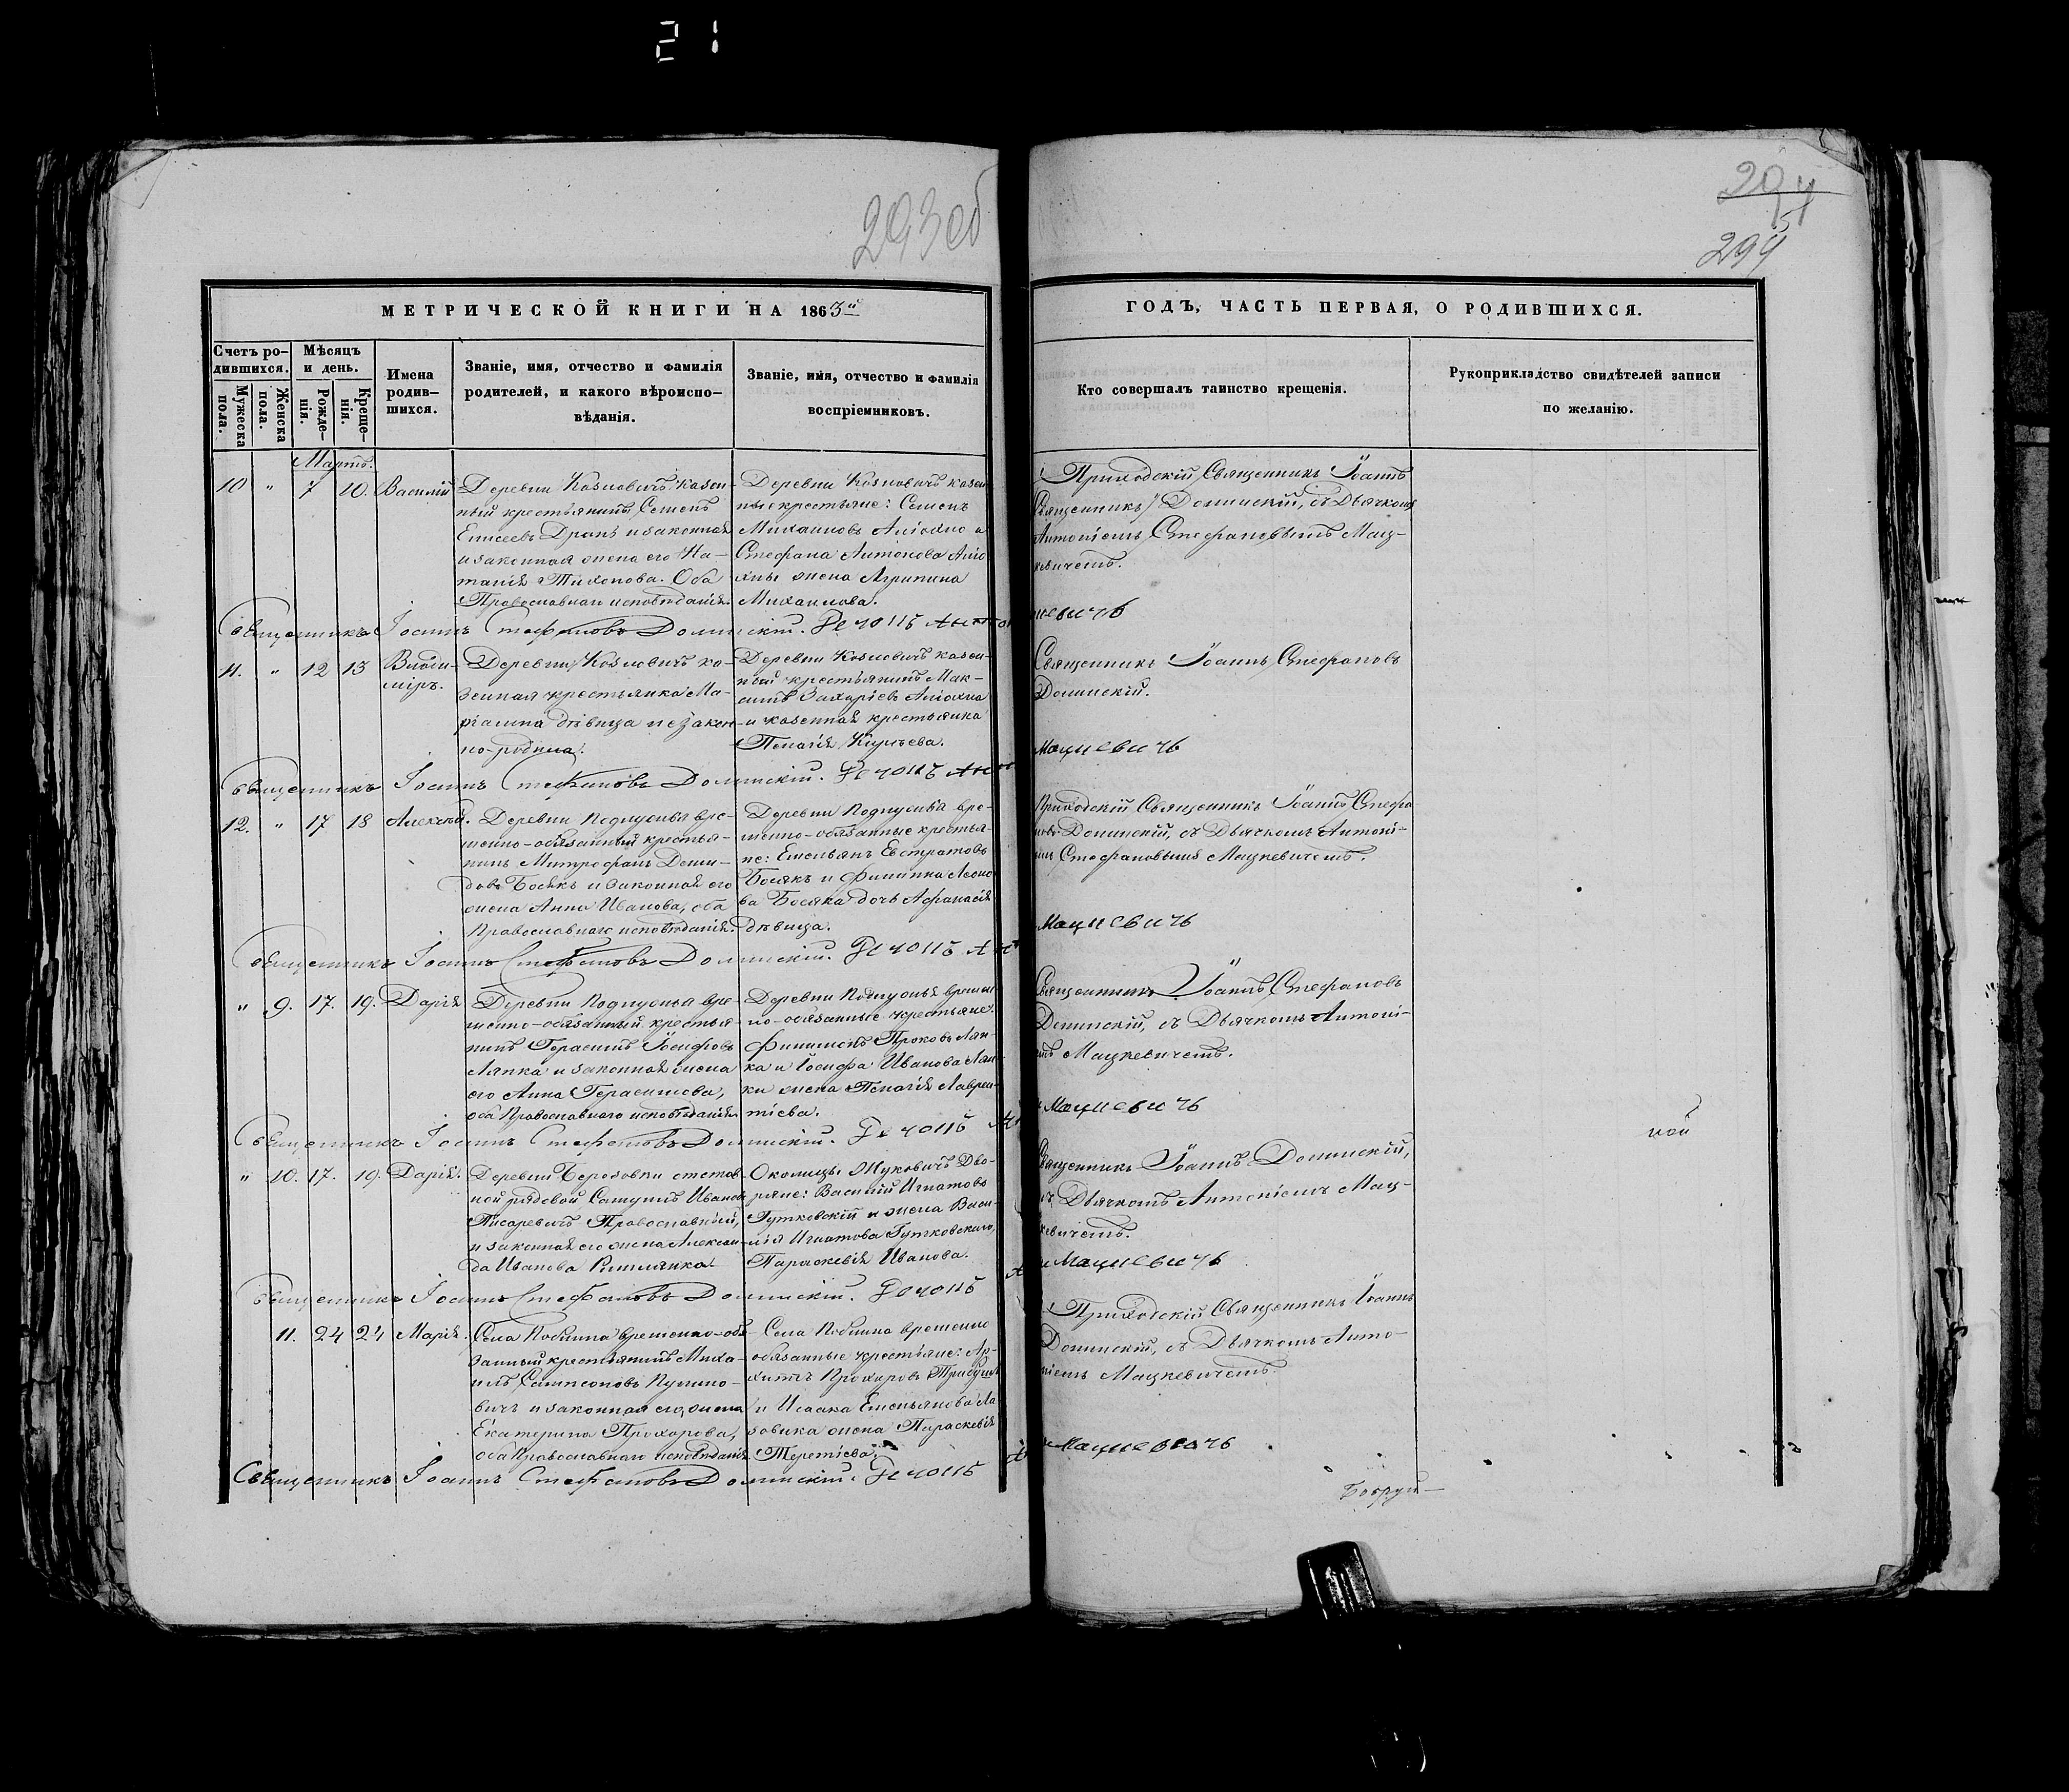 21
293 об
294
294
МЕТРИЧЕСКОЙ КНИГИ НА 1863й
ГОДЪ, ЧАСТЬ ПЕРВАЯ, О РОДИВШИХСЯ.
Счетъ ро-
дившихся.
Мужеска
пола.
Женска
пола.
Мѣсяцъ
и день.
Рожде-
нія.
Креще-
нія.
Имена
родив-
шихся.
Званіе, имя, отчество и фамилія
родителей, и какого вѣроиспо-
вѣданія.
Званіе, имя, отчество и фамилія
воспріемниковъ.
Кто совершалъ таинство крещенія.
Рукоприкладство свидѣтелей записи
по желанію.
Мартъ.
10 " 7 10. Василій
Деревни Козловичъ казен-
ный крестьянинъ Семенъ
Елисеевъ Драпъ и законная
и законная жена его На-
талія Тихонова. Оба
Православнаго исповѣданія.
Деревни Козловичъ казен
ные крестьяне: Семенъ
Михаиловъ а
Стефана Антонова
жена Агрипина
Михаилова.
Приходскій Священникъ Іоаннъ
Священникъ Долинскій, съ Дьячкомъ
Антоніемъ Стефановымъ Мац-
кевичемъ.
Священникъ Іоаннъ Стефановъ Долинскій. Дьячокъ
11. " 12 13 Влади-
міръ.
Деревни Козловичъ ка-
зенная крестьянка Ма-
ріанна дѣвица незакон-
но-родила.
Деревни Козловичъ казен-
ный крестьянинъ Мак-
симъ Захаріевъ
и казенная крестьянка
Пелагія Кирѣева.
Священникъ Іоаннъ Стефановъ
Долинскій.
Мацкевичъ
Священникъ Іоаннъ Стефановъ Долинскій. Дьячокъ
12. " 17 18 Алексѣй.
Деревни вре-
менно-обязанный крестья-
нинъ Митрофанъ Деми-
довъ Босякъ и законная его
жена Анна Иванова, оба
Православнаго исповѣданія.
Деревни вре-
менно-обязанные крестья-
не: Емельянъ Евстратовъ
Босякъ и
ва Босяка дочь Афанасія
дѣвица.
Приходскій Священникъ Іоаннъ Стефа
новъ Долинскій, съ Дьячкомъ Антоні-
емъ Стефановымъ Мацкевичемъ.
Мацкевичъ
Священникъ Іоаннъ Стефановъ Долинскій. Дьячокъ
" 9. 17. 19. Дарія
Деревни вре-
менно-обязанный крестья-
нинъ Герасимъ Іосифовъ
Ляпка и законная жена
его Анна Герасимова,
оба Православнаго исповѣданія
Деревни времен
но-обязанные крестьяне:
Филимонъ Проковъ Ляп-
ка и Іосифа Иванова Ляп-
ки жена Пелагія Лаврен-
тіева.
Священникъ Іоаннъ Стефановъ
Долинскій, съ Дьячкомъ Антоні-
емъ Мацкевичемъ.
Мацкевичъ
Священникъ Іоаннъ Стефановъ Долинскій. Дьячокъ
" 10. 17. 19. Дарія.
Деревни Березовки отстав
ной рядовой Иванов
Писаревичъ Православный,
и законная его жена Алексан-
да Иванова Римлянка.
Околицы Жуковичъ Дво-
ряне: Василій Игнатовъ
Гутковскій и жена Васи-
лія Игнатова Гутковскаго,
Параскевія Иванова.
Священникъ Іоаннъ Долинскій,
съ Дьячкомъ Антоніемъ Мац-
кевичемъ.
Мацкевичъ
Священникъ Іоаннъ Стефановъ Долинскій. Дьячокъ
11. 24 24 Марія.
Села временно-обя
занный крестьянинъ Миха-
илъ Сампсоновъ
вичъ и законная его жена
Екатерина Прохорова,
оба Православнаго исповѣданія
Села временно
обязанные крестьяне: Ар-
хипъ Прохоровъ
и Исаака Емельянова Ла
зовика жена Параскевія
Терентіева.
Приходскій Священникъ Іоаннъ
Долинскій, съ Дьячкомъ Анто-
ніемъ Мацкевичемъ.
Мацкевичъ
Священникъ Іоаннъ Стефановъ Долинскій. Дьячокъ
ной
Бобруй-